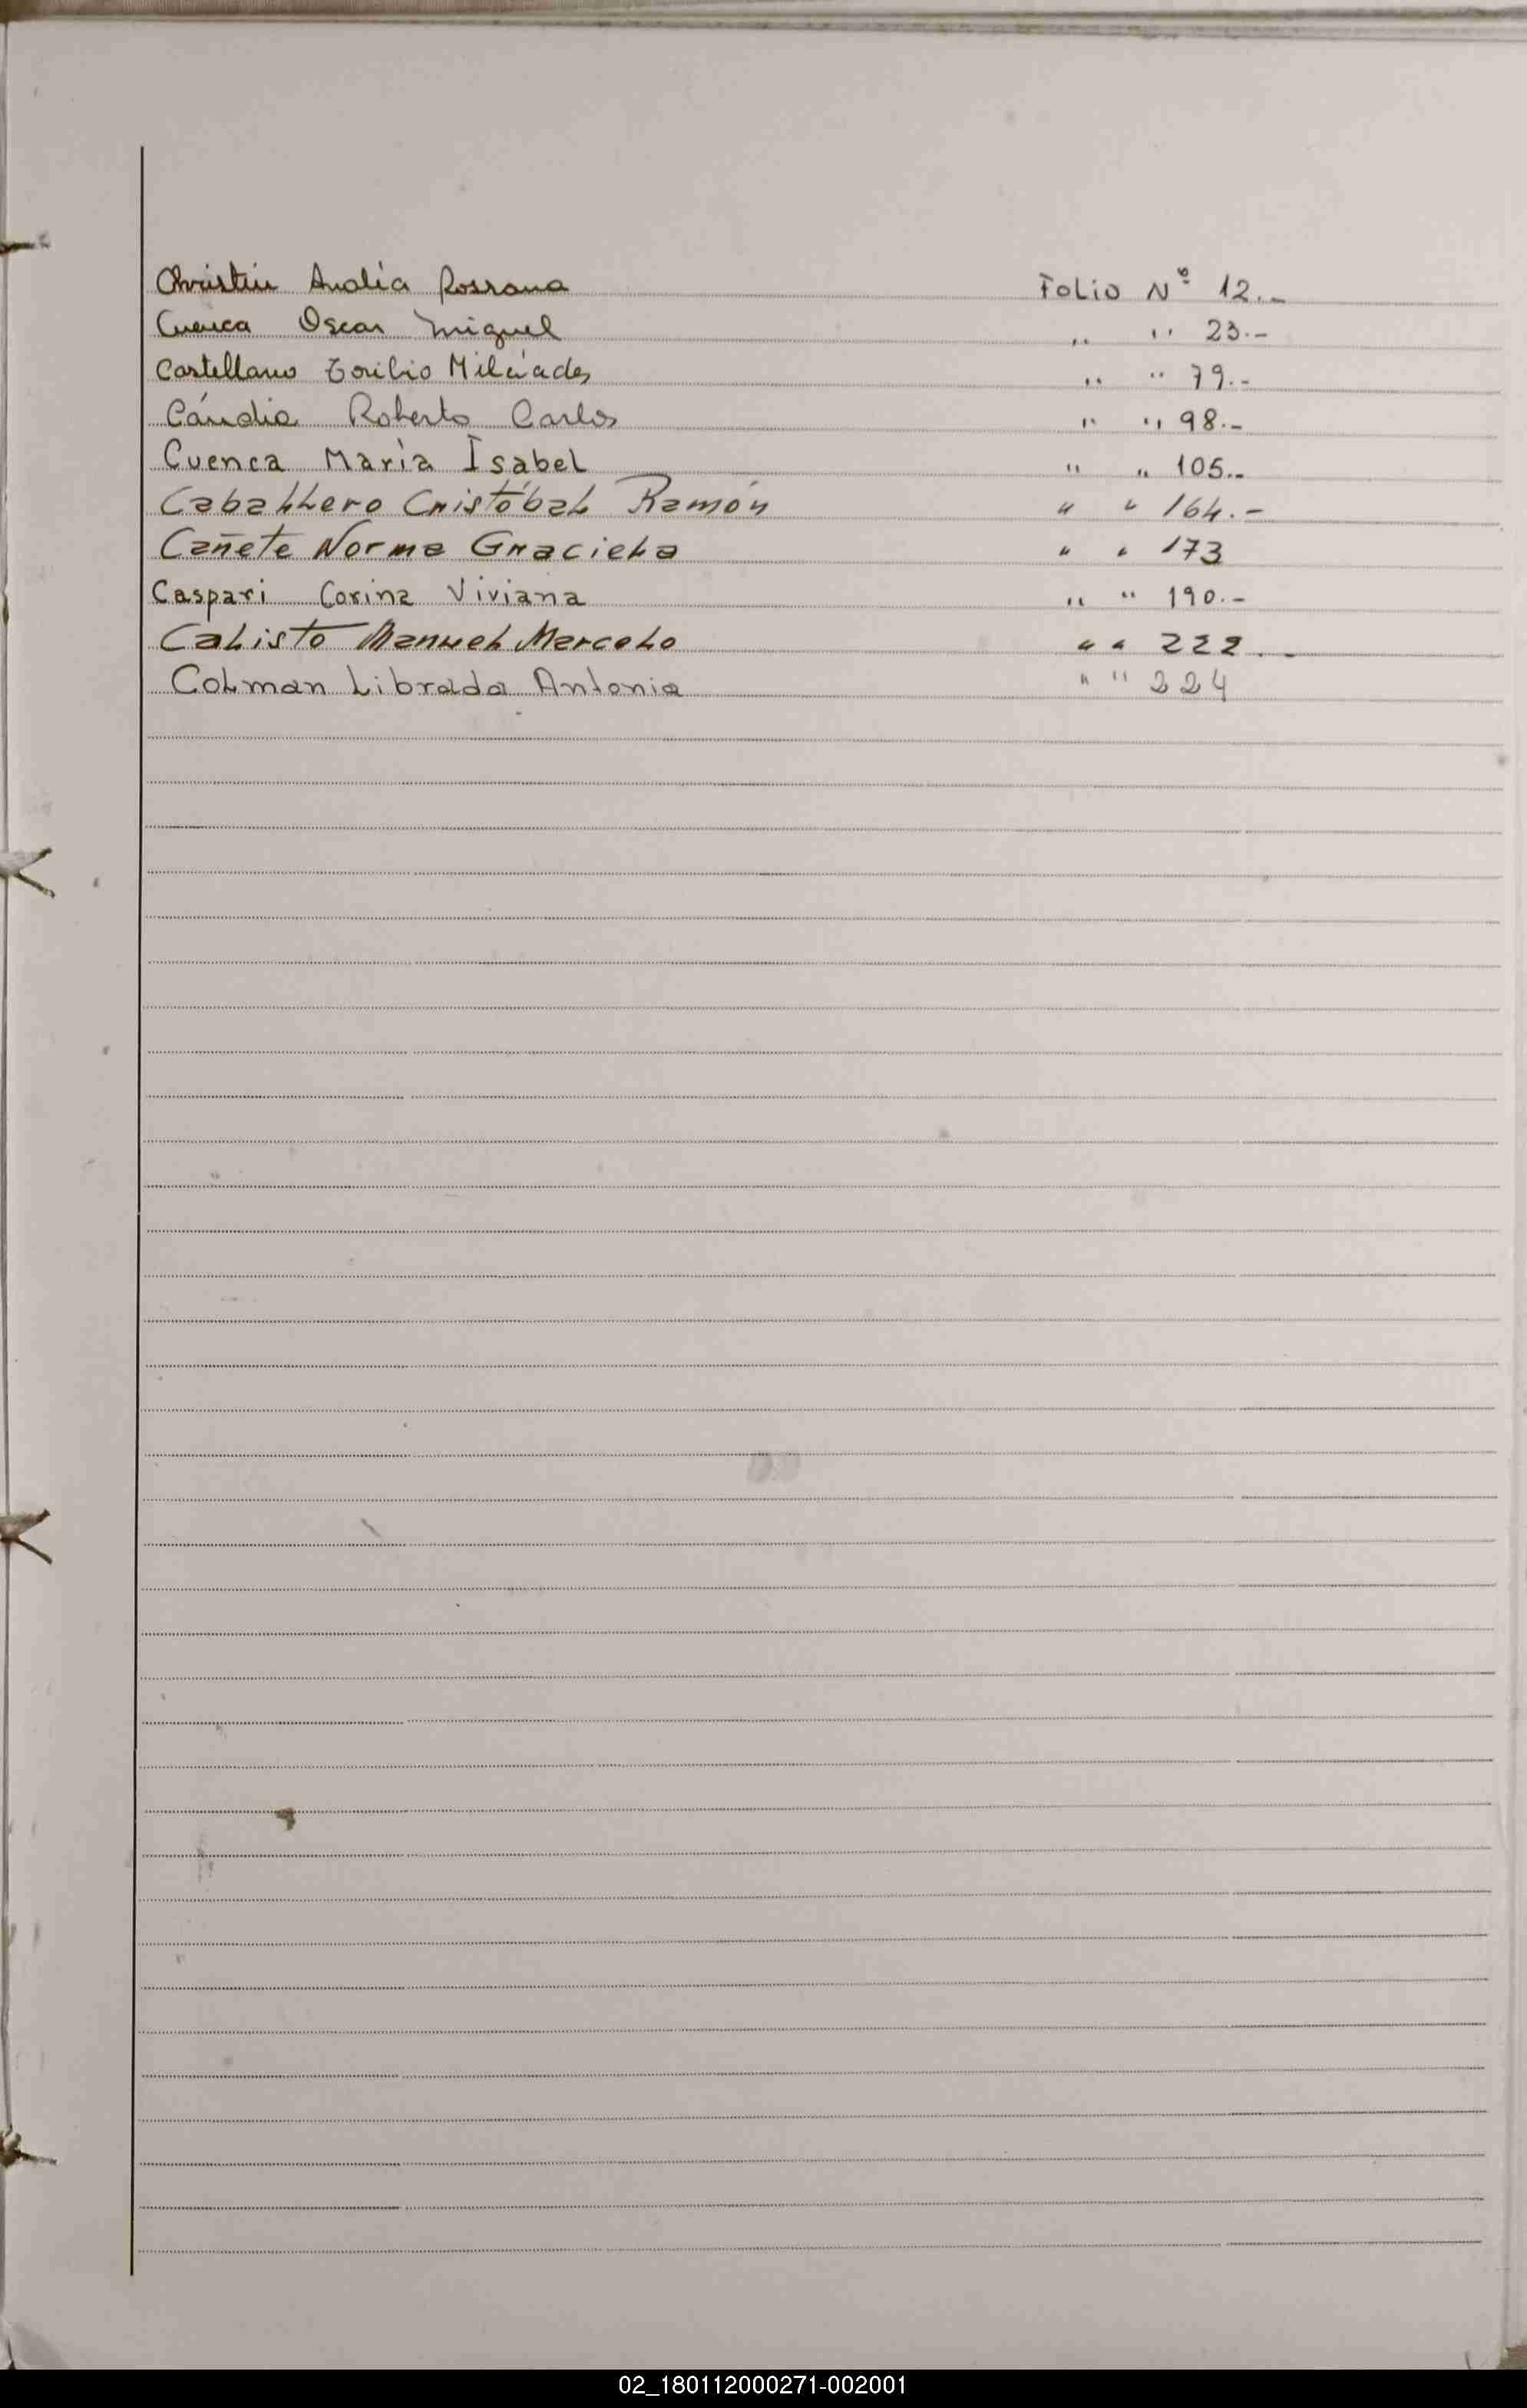 Christin Analía Rossana Folio Nº 12.-
Cuenca Oscar Miguel " " 23.-
Castellano Toribio Milciades " " 79.-
Cándia Roberto Carlos " " 98.-
Cuenca María Isabel " " 105.-
Caballero Cristóbal Ramón " " 164.-
Cañete Norma Graciela " " 173
Caspari Corina Viviana " " 190.-
Calisto Manuel Marcelo " " 222.-
Colman Librada Antonia " " 224
02_180112000271-002001